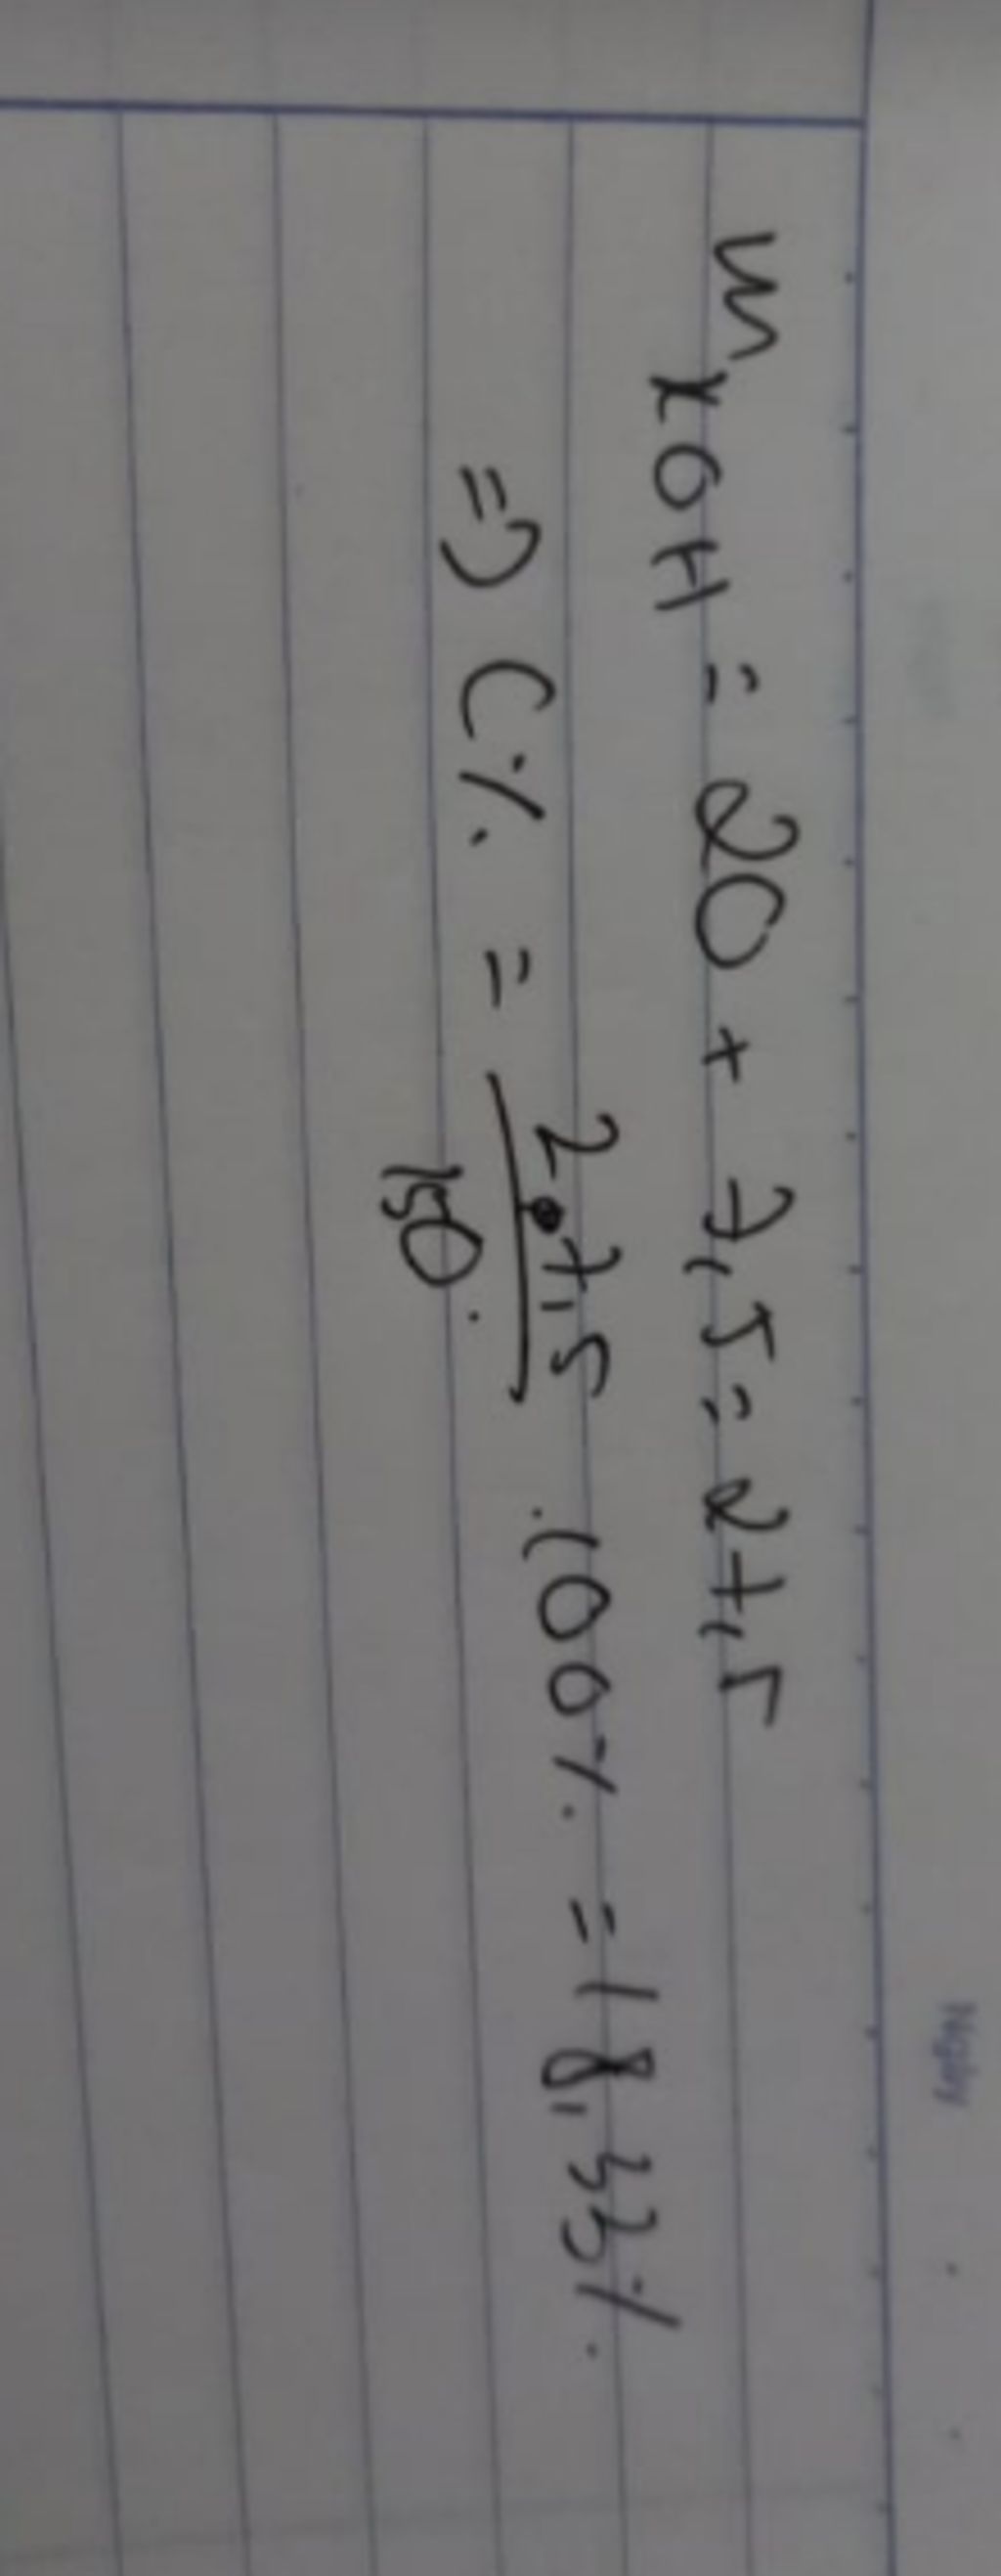 m KOH = 20 + 7,5 = 27,5
=> C% = 27,5 / 150 . 100% = 18,33%.
Ngày